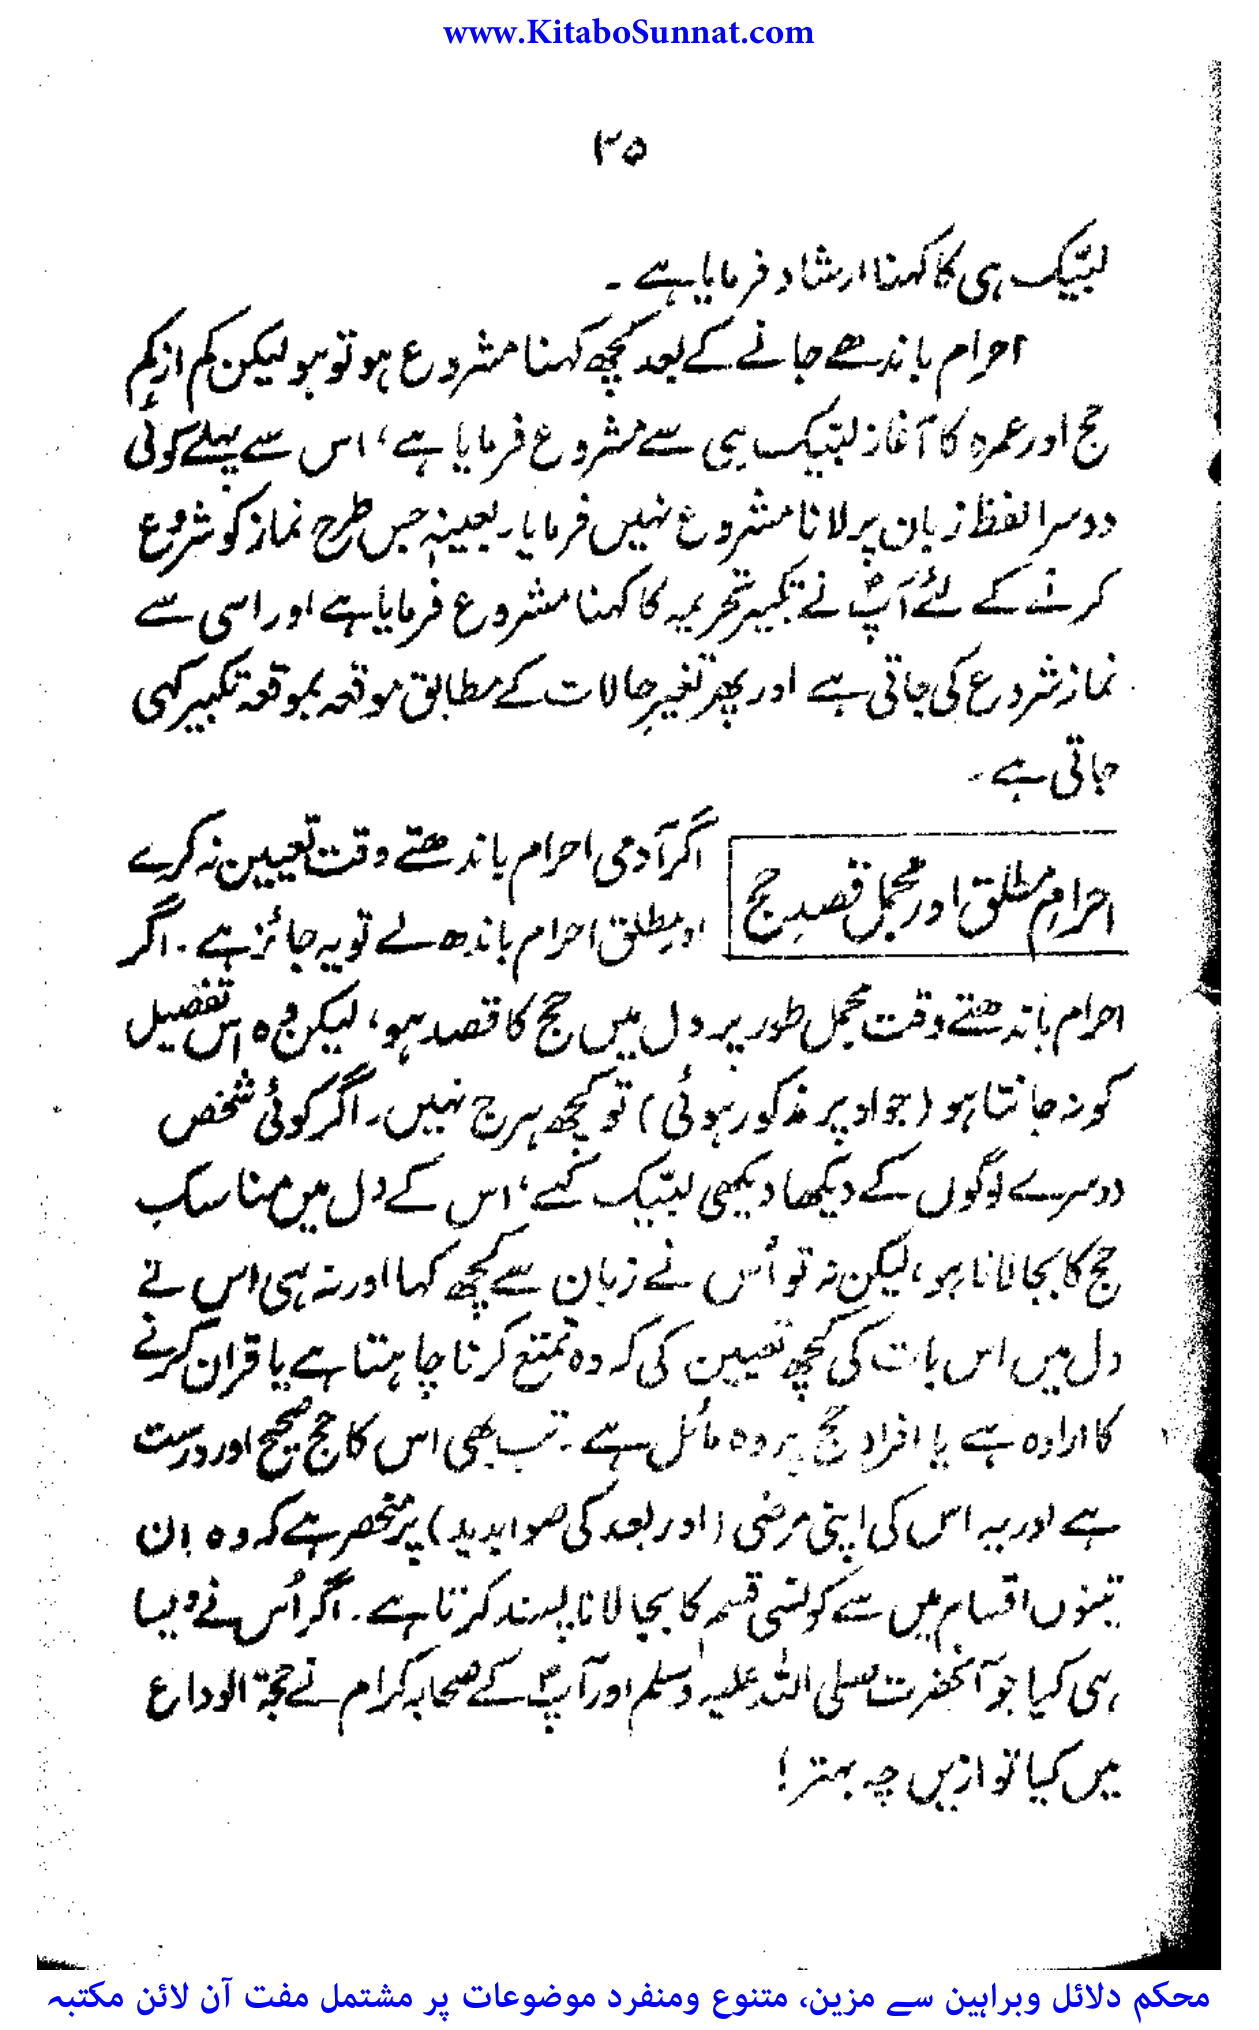 www.KitaboSunnat.com
۳۵
لبّیک ہی کا کہنا ارشاد فرمایا ہے ۔
احرام باندھے جانے کے بعد کچھ کہنا مشروع ہو تو ہو لیکن کم از کم
حج اور عمرہ کا آغاز لبّیک ہی سے مشروع فرمایا ہے، اس سے پہلے کوئی
دوسرا لفظ زبان پر لانا مشروع نہیں فرمایا۔ بعینہٖ جس طرح نماز کو شروع
کرنے کے لئے آپؐ نے تکبیر تحریمہ کا کہنا مشروع فرمایا ہے اور اسی سے
نماز شروع کی جاتی ہے اور پھر تغیرِ حالات کے مطابق موقعہ بموقعہ تکبیر کہی
جاتی ہے۔
احرامِ مطلق اور مجمل قصدِ حج
اگر آدمی احرام باندھتے وقت تعیین نہ کرے
اور مطلق احرام باندھ لے تو یہ جائز ہے۔ اگر
احرام باندھتے وقت مجمل طور پر دل میں حج کا قصد ہو، لیکن وہ اس تفصیل
کو نہ جانتا ہو (جو اوپر مذکور ہوئی) تو کچھ ہرج نہیں۔ اگر کوئی شخص
دوسرے لوگوں کے دیکھا دیکھی لبّیک کہے، اس کے دل میں مناسک
حج کا بجا لانا ہو، لیکن نہ تو اُس نے زبان سے کچھ کہا اور نہ ہی اس نے
دل میں اس بات کی کچھ تعیین کی کہ وہ تمتع کرنا چاہتا ہے یا قران کرنے
کا ارادہ ہے یا افرادِ حج پر وہ مائل ہے۔ تب بھی اس کا حج صحیح اور درست
ہے اور یہ اس کی اپنی مرضی (اور بعد کی صوابدید) پر منحصر ہے کہ وہ ان
تینوں اقسام میں سے کونسی قسم کا بجا لانا پسند کرتا ہے۔ اگر اُس نے ویسا
ہی کیا جو آنحضرت صلی اللہ علیہ وسلم اور آپؐ کے صحابہ کرام نے حجۃ الوداع
میں کیا تو ازیں چہ بہتر!
محکم دلائل وبراہین سے مزین، متنوع ومنفرد موضوعات پر مشتمل مفت آن لائن مکتبہ